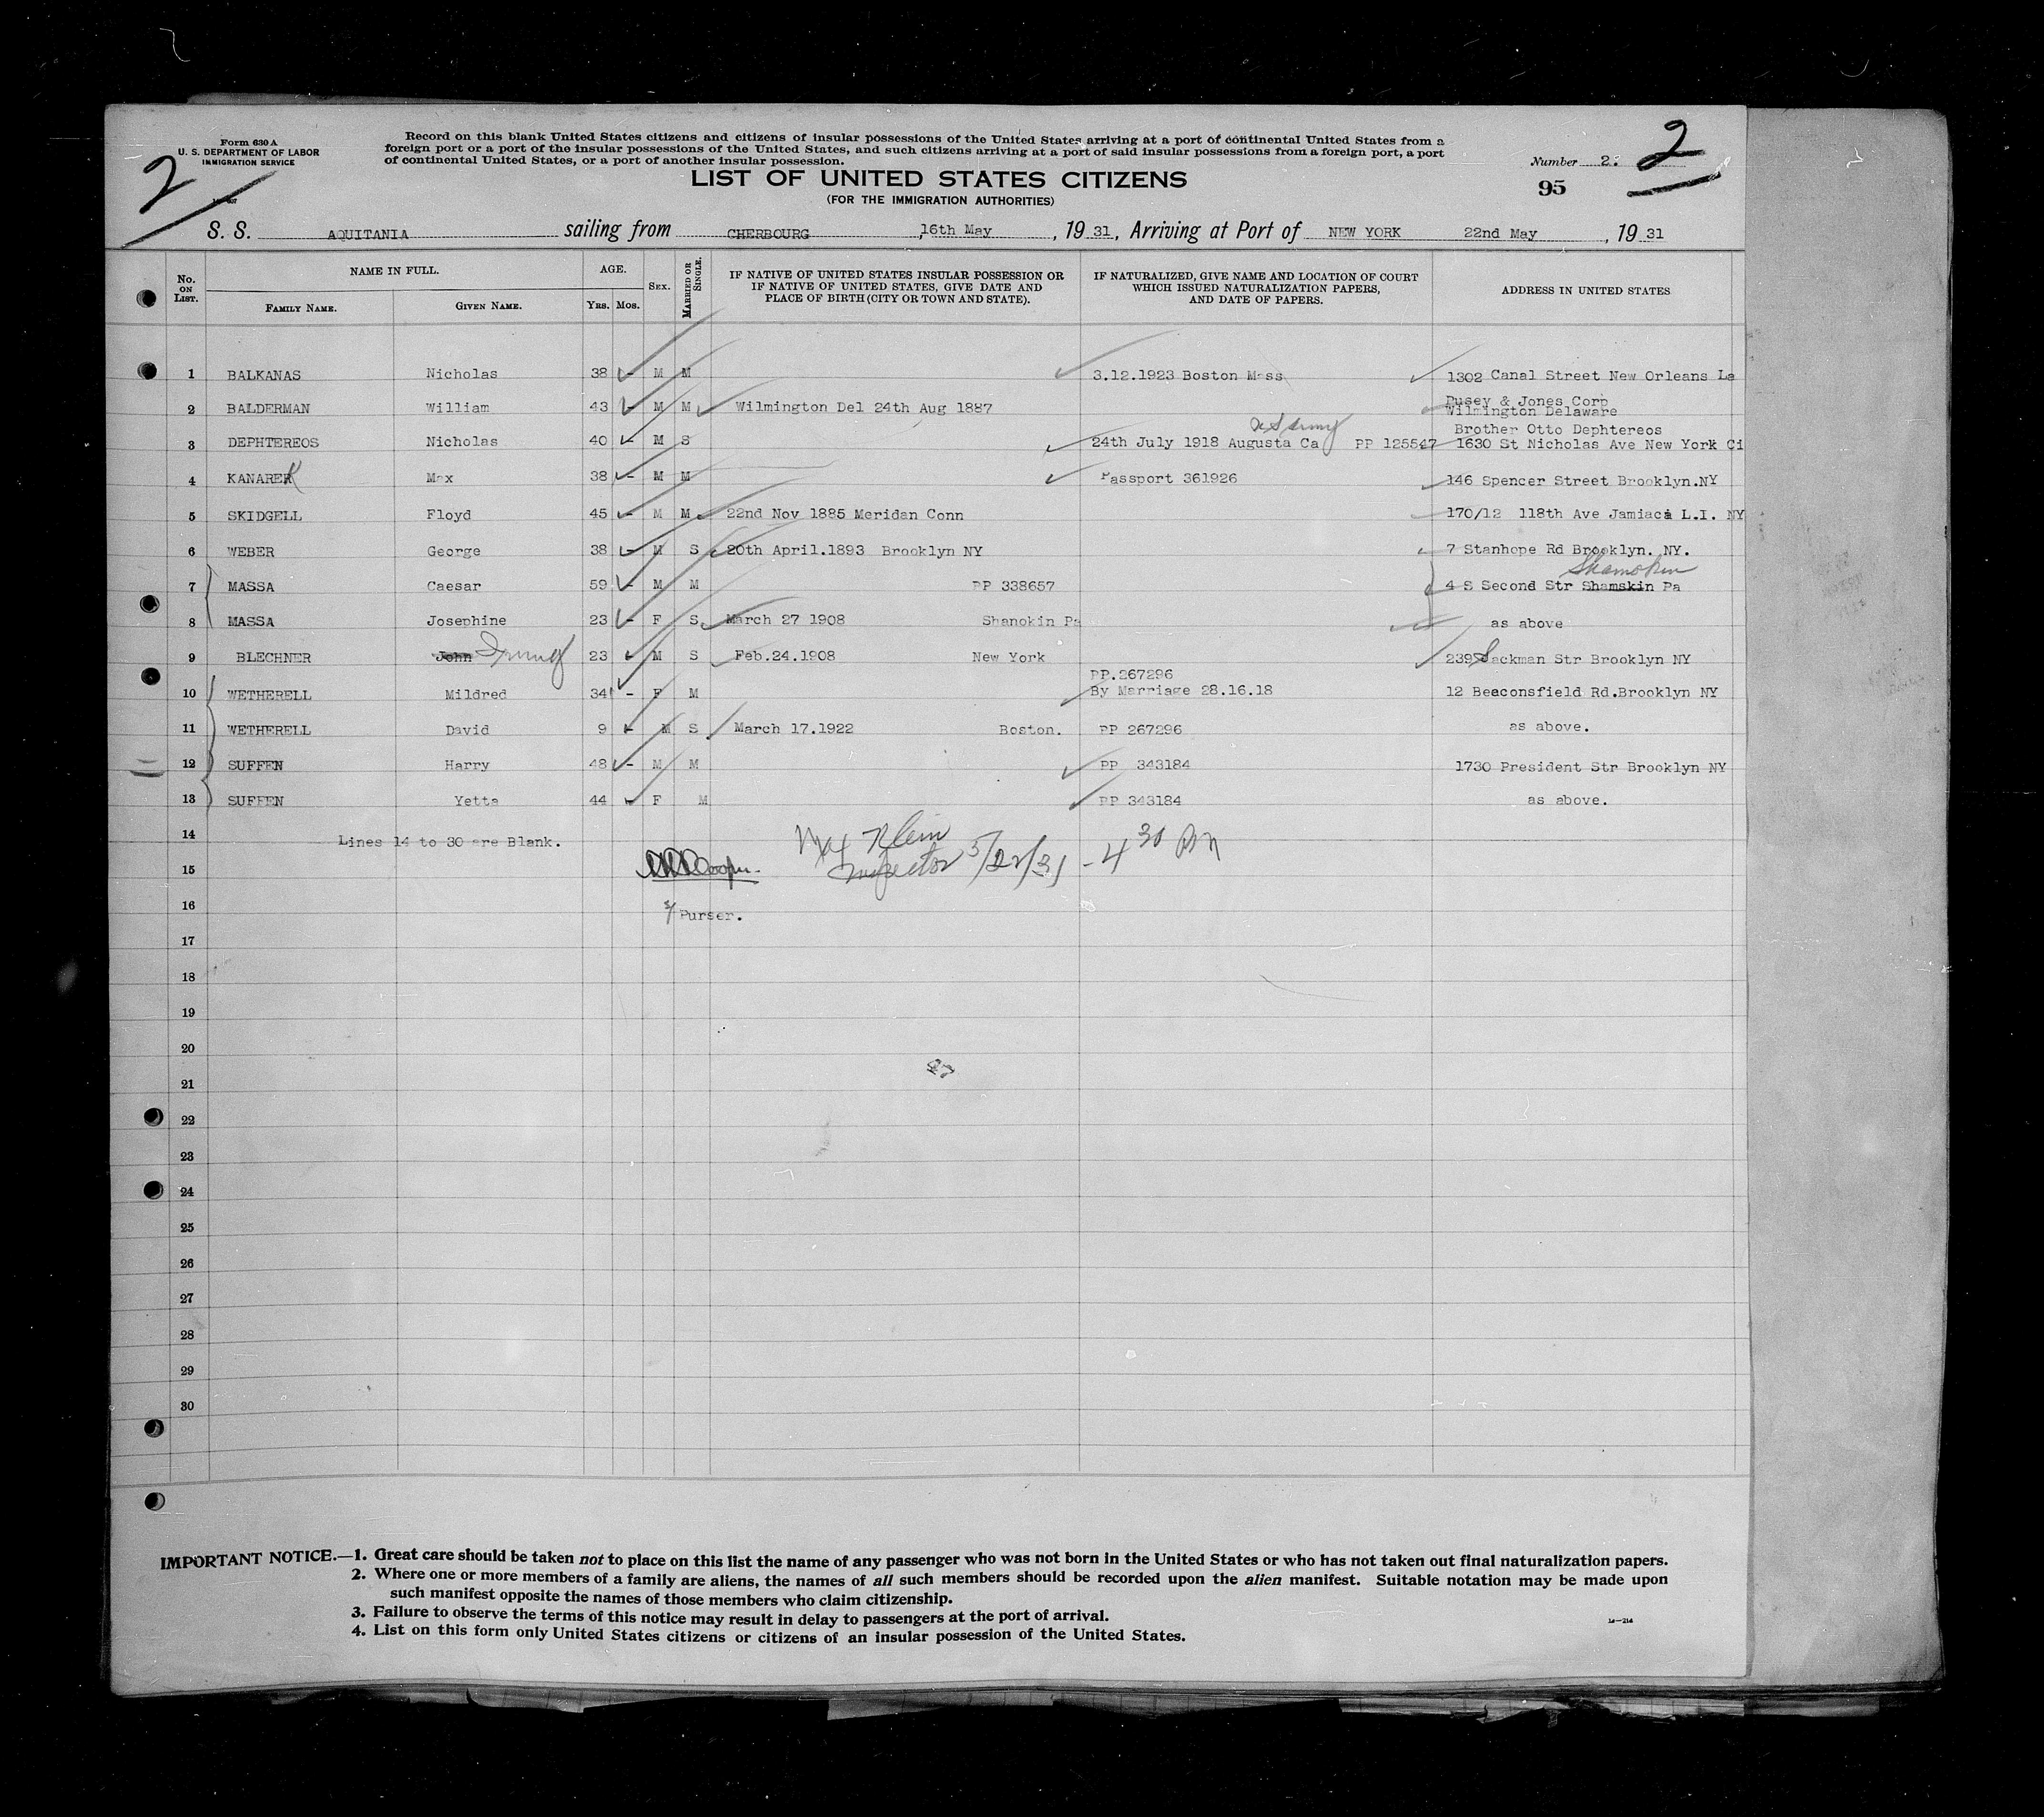 Form 630 A
U. S. DEPARTMENT OF LABOR
IMMIGRATION SERVICE
2
Record on this blank United States citizens and citizens of insular possessions of the United States arriving at a port of continental United States from a
foreign port or a port of the insular possessions of the United States, and such citizens arriving at a port of said insular possessions from a foreign port, a port
of continental United States, or a port of another insular possession.
Number 2. 2
95
LIST OF UNITED STATES CITIZENS
(FOR THE IMMIGRATION AUTHORITIES)
S. S. AQUITANIA sailing from CHERBOURG, 16th May, 1931, Arriving at Port of NEW YORK 22nd May, 1931
No. ON LIST. NAME IN FULL. FAMILY NAME. GIVEN NAME. AGE. YRS. MOS. SEX. MARRIED OR SINGLE. IF NATIVE OF UNITED STATES INSULAR POSSESSION OR IF NATIVE OF UNITED STATES, GIVE DATE AND PLACE OF BIRTH (CITY OR TOWN AND STATE). IF NATURALIZED, GIVE NAME AND LOCATION OF COURT WHICH ISSUED NATURALIZATION PAPERS, AND DATE OF PAPERS. ADDRESS IN UNITED STATES
1 BALKANAS Nicholas 38 - M M 3.12.1923 Boston Mass 1302 Canal Street New Orleans La
2 BALDERMAN William 43 - M M Wilmington Del 24th Aug 1887 Pusey & Jones Corp
Wilmington Delaware
3 DEPHTEREOS Nicholas 40 - M S 24th July 1918 Augusta Ca US Army PP 125547 Brother Otto Dephtereos
1630 St Nicholas Ave New York Ci
4 KANAREK Max 38 - M M Passport 361926 146 Spencer Street Brooklyn.NY
5 SKIDGELL Floyd 45 - M M 22nd Nov 1885 Meridan Conn 170/12 118th Ave Jamiaca L.I. NY
6 WEBER George 38 - M S 20th April.1893 Brooklyn NY 7 Stanhope Rd Brooklyn. NY.
7 MASSA Caesar 59 - M M PP 338657 4 S Second Str Shamskin Pa Shamokin
8 MASSA Josephine 23 - F S March 27 1908 Shanokin Pa as above
9 BLECHNER John Irving 23 - M S Feb.24.1908 New York 239 Sackman Str Brooklyn NY
PP.267296
10 WETHERELL Mildred 34 - F M By Marriage 28.16.18 12 Beaconsfield Rd.Brooklyn NY
11 WETHERELL David 9 - M S March 17.1922 Boston. PP 267296 as above.
12 SUFFEN Harry 48 - M M PP 343184 1730 President Str Brooklyn NY
13 SUFFEN Yetta 44 - F M PP 343184 as above.
14 Lines 14 to 30 are Blank. Max Klein
15 Inspector 5/22/31 - 4 30 PM
16 Purser.
17
18
19
20
21
22
23
24
25
26
27
28
29
30
IMPORTANT NOTICE.—1. Great care should be taken not to place on this list the name of any passenger who was not born in the United States or who has not taken out final naturalization papers.
2. Where one or more members of a family are aliens, the names of all such members should be recorded upon the alien manifest. Suitable notation may be made upon
such manifest opposite the names of those members who claim citizenship.
3. Failure to observe the terms of this notice may result in delay to passengers at the port of arrival.
4. List on this form only United States citizens or citizens of an insular possession of the United States.